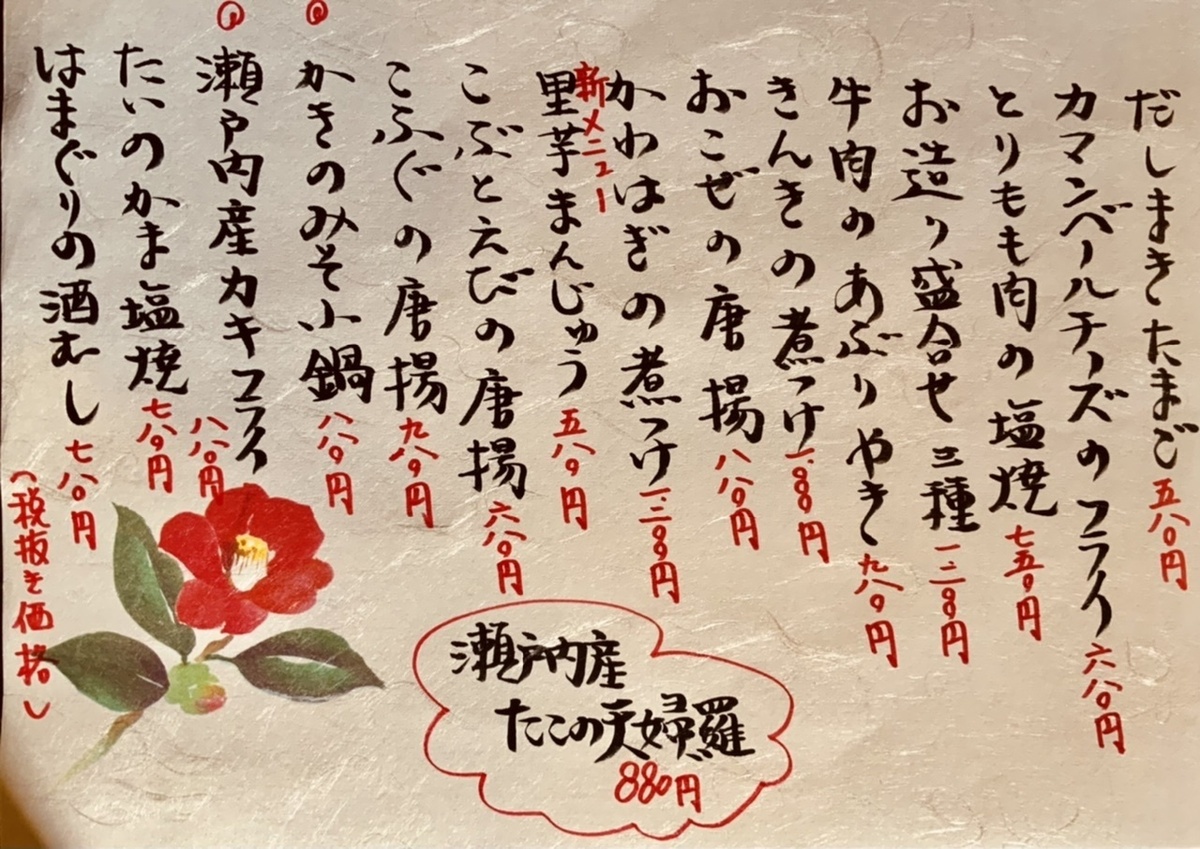 だしまきたまご 五八〇円
カマンベールチーズのフライ 六八〇円
とりもも肉の塩焼 七五〇円
お造り盛合せ三種 一二〇〇円
牛肉のあぶりやき 九八〇円
きんきの煮つけ 一八〇〇円
おこぜの唐揚 八八〇円
かわはぎの煮つけ 一二〇〇円
新メニュー
里芋まんじゅう 五八〇円
こぶとえびの唐揚 六八〇円
こふぐの唐揚 九八〇円
かきのみそ小鍋 八八〇円
瀬戸内産カキフライ 八八〇円
たいのかま塩焼 七八〇円
はまぐりの酒むし 七八〇円
(税抜き価格)
瀬戸内産
たこの天婦羅
880円